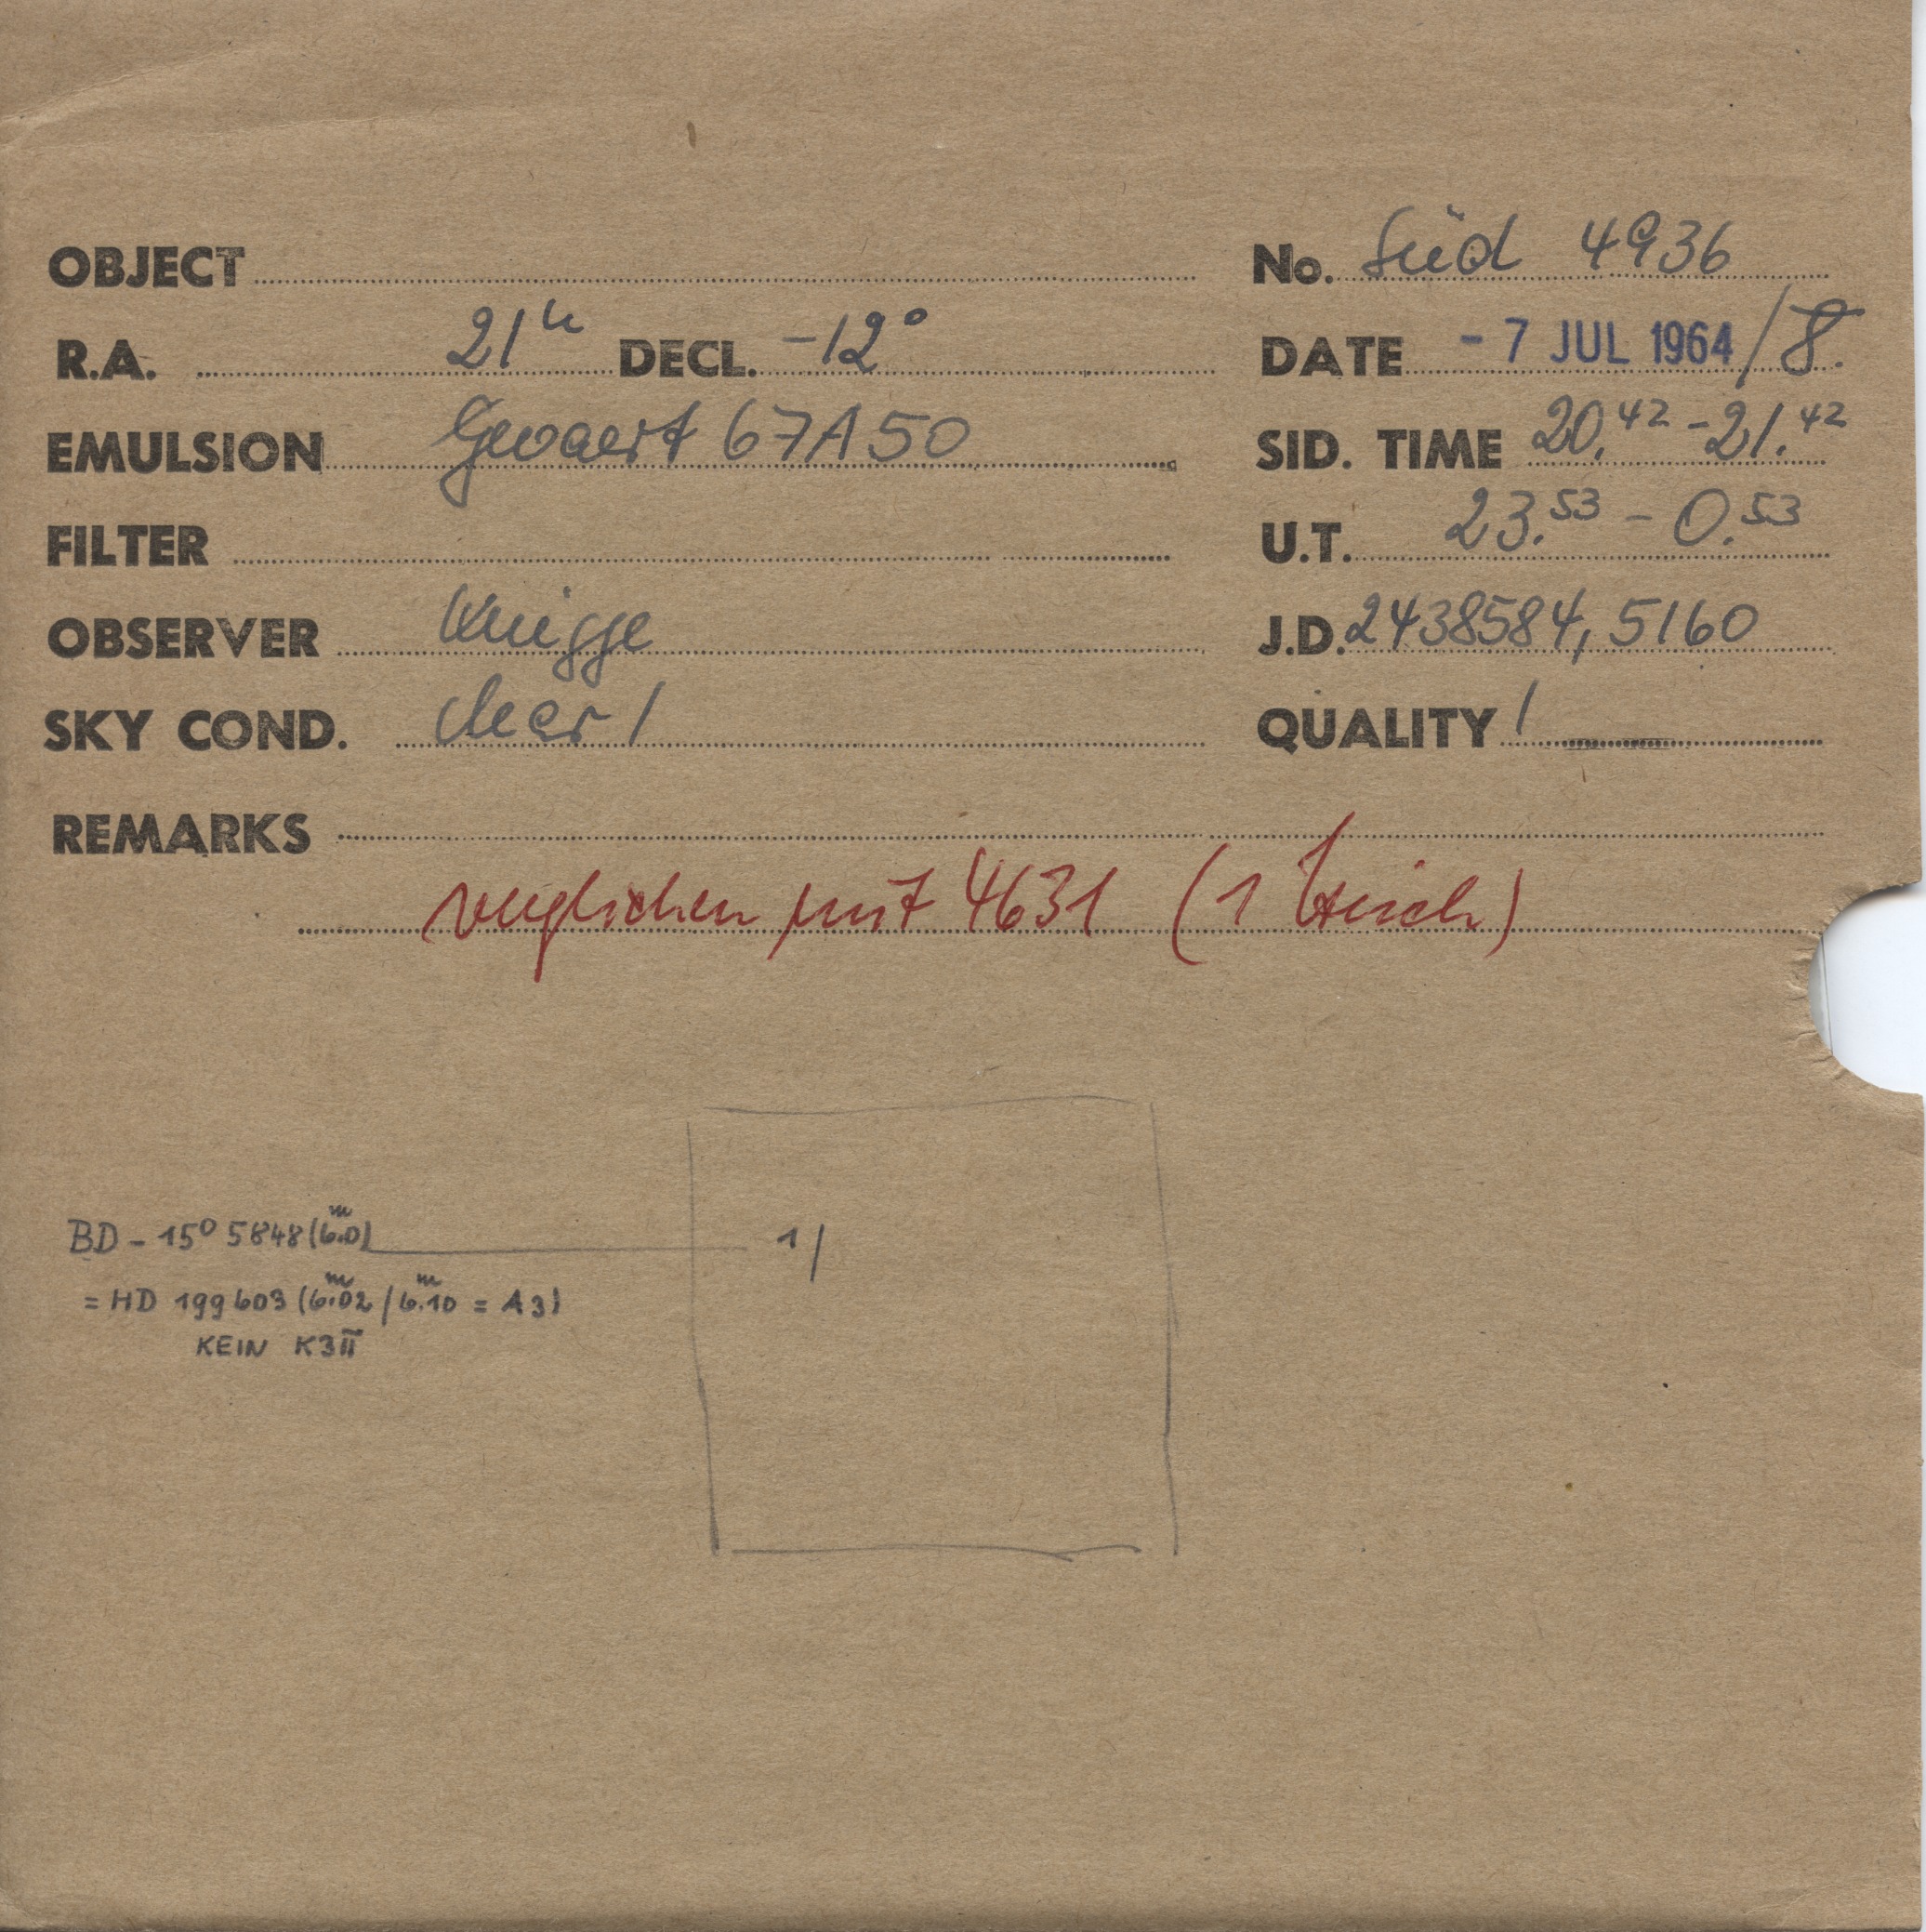 OBJECT No. Süd 4936
R.A. 21h DECL. -12° DATE - 7 JUL 1964/8.
EMULSION Gevaert 67A50 SID. TIME 20.42 - 21.42
FILTER U.T. 23.53 - 0.53
OBSERVER Knigge J.D. 2438584,5160
SKY COND. clear 1 QUALITY 1
REMARKS
verglichen mit 4631 (1
BD - 15° 5848 (6.m0) 1/
= HD 199603 (6.m02 / 6.m10 = A3)
KEIN K3II